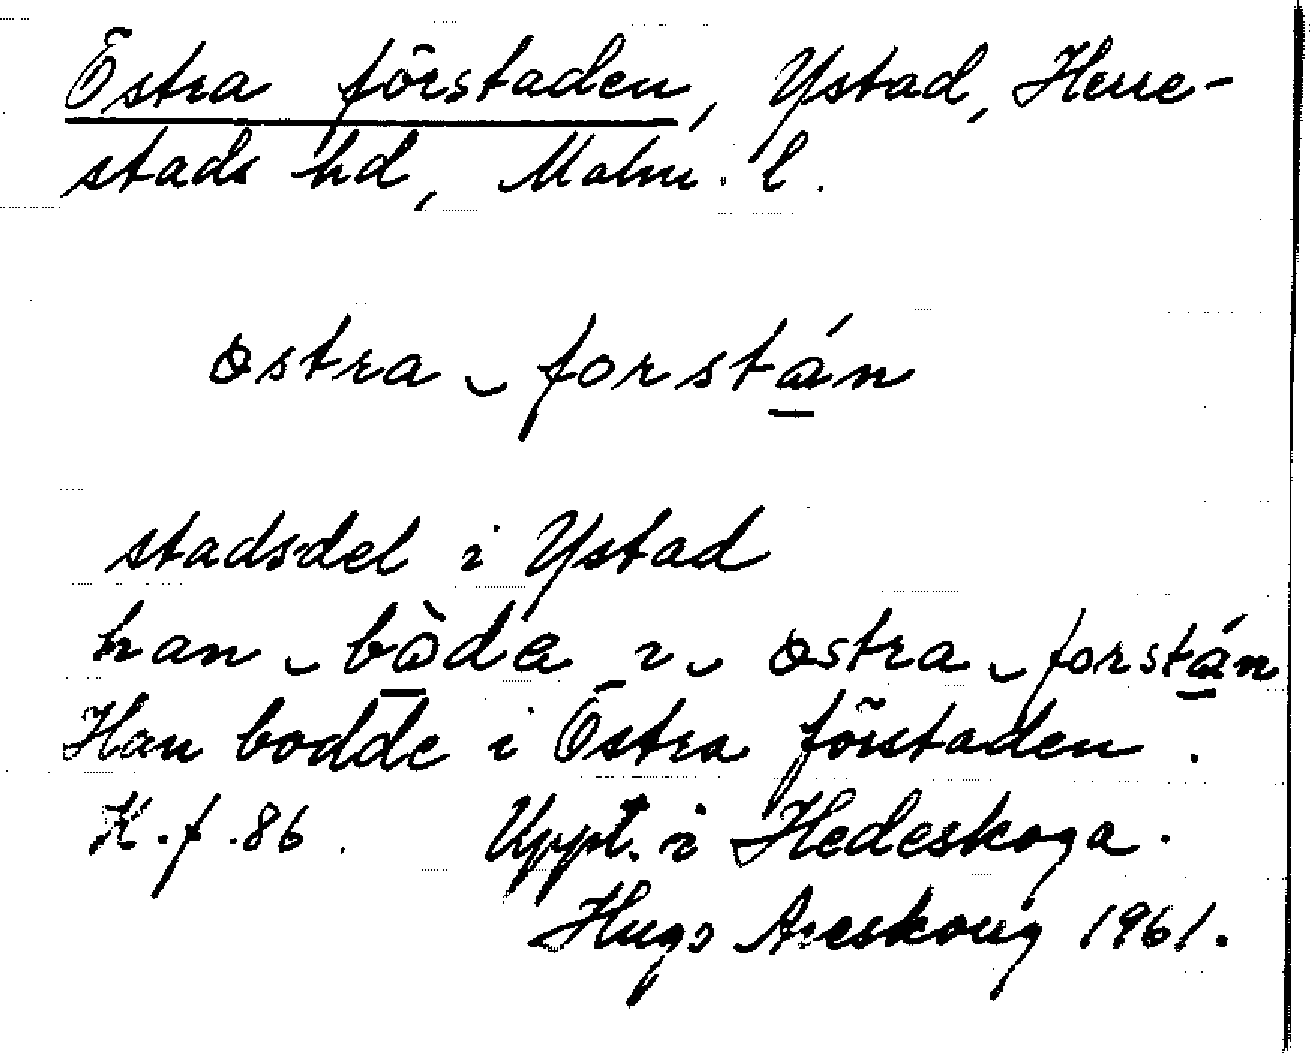 Östra förstaden, Ystad, Herre-
stads hd, Malm. l.
østra ‿ forstán
stadsdel i Ystad
han ‿ bòda i ‿ østra ‿ forstán
Han bodde i Östra förstaden.
K. f. 86. Uppt. i Hedeskoga.
Hugo Areskoug 1961.